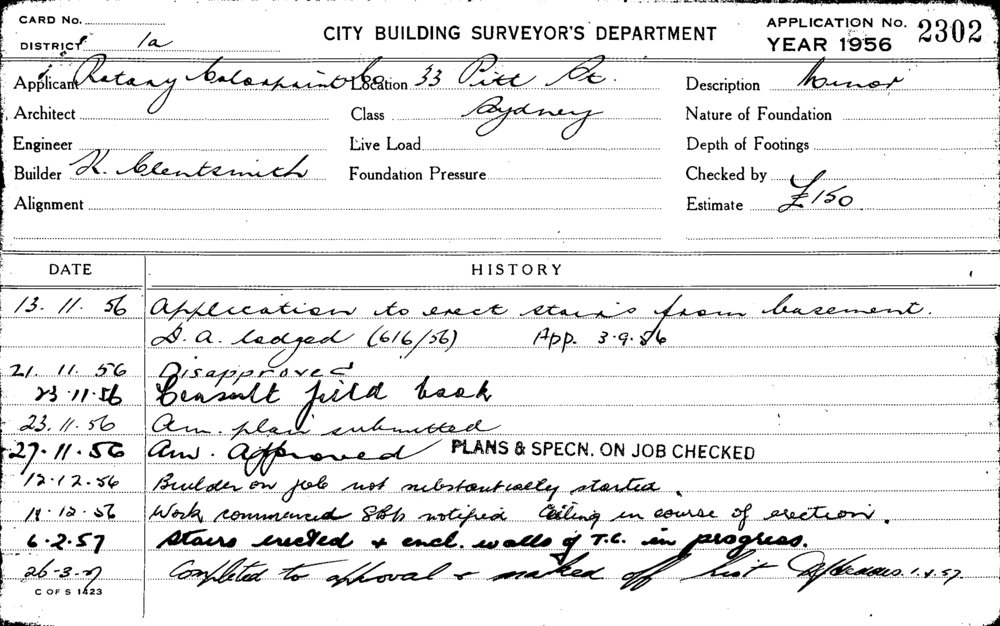 CARD No.
DISTRICT 1a
CITY BUILDING SURVEYOR'S DEPARTMENT
APPLICATION No. 2302
YEAR 1956
Applicant Rotary Colorprint Co Location 33 Pitt St. Description Minor
Architect Class Sydney Nature of Foundation
Engineer Live Load Depth of Footings
Builder K. Clentsmith Foundation Pressure Checked by
Alignment Estimate £150
DATE HISTORY
13. 11. 56 Application to erect stairs from basement.
D. A. lodged (616/56) App. 3.9.56
21. 11. 56 Disapproved
23.11.56 Consult field book
23.11.56 Am. plan submitted
27.11.56 Am. Approved PLANS & SPECN. ON JOB CHECKED
12.12.56 Builder on job not substantially started.
18.12.56 Work commenced notified Ceiling in course of erection.
6.2.57 Stairs erected & encl. walls of T.C. in progress.
26-3-57 Completed to approval & marked off list 1.4.57.
C OF S 1423